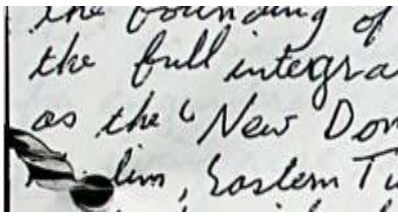 the founding of
the full integra
as the "New Dom
lim, Eastern Tu